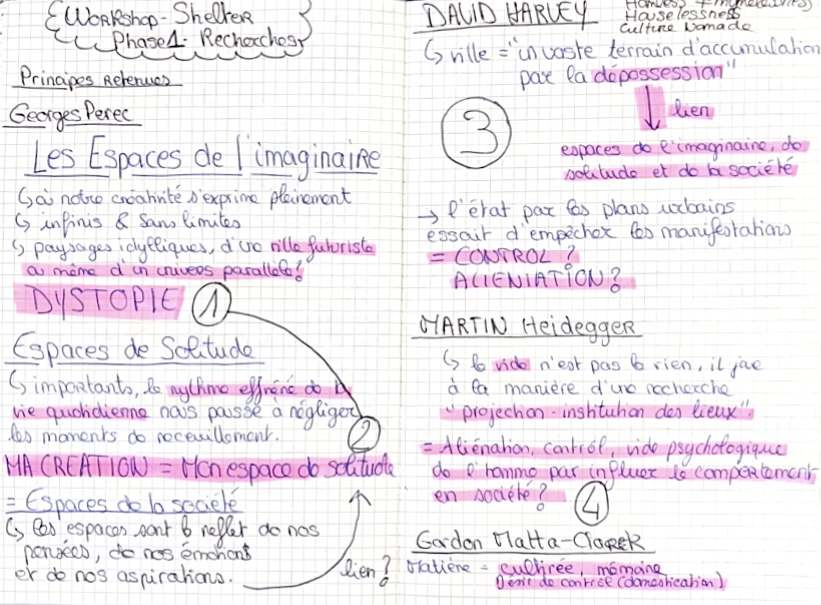 Workshop - Shelter
Phase 1 - Recherches
Principes Retenues
Georges Perec
Les Espaces de l'imaginaire
↳ où notre créativité s'exprime pleinement
↳ infinis & sans limites
↳ paysages idylliques, d'une ville futuriste
ou même d'un univers parallèle!
DYSTOPIE 1
Espaces de Solitude
↳ importants, le rythme effréné de la
vie quotidienne nous pousse à négliger
les moments de receuillement.
2
MA CREATION = Mon espace de solitude
= Espaces de la société
↳ Les espaces sont le reflet de nos
pensées, de nos émotions
et de nos aspirations.
lien?
DAVID HARVEY
Houselessness
Culture Nomade
↳ ville = "un vaste terrain d'accumulation
par la dépossession"
3
↓ lien
espaces de l'imaginaire, de
solitude et de la société
→ l'état par les plans urbains
essait d'empêcher les manifestations
= CONTROL?
ALIENIATION?
MARTIN Heidegger
↳ le vide n'est pas le rien, il joue
à la manière d'une recherche
"projection - institution des lieux".
= Aliénation, contrôl, vide psychologique
de l'homme par influer le comportement
en société? 4
Gordon Matta-Clarek
Matière = cultivée, mémoire
Désir de contrôle (domestication)